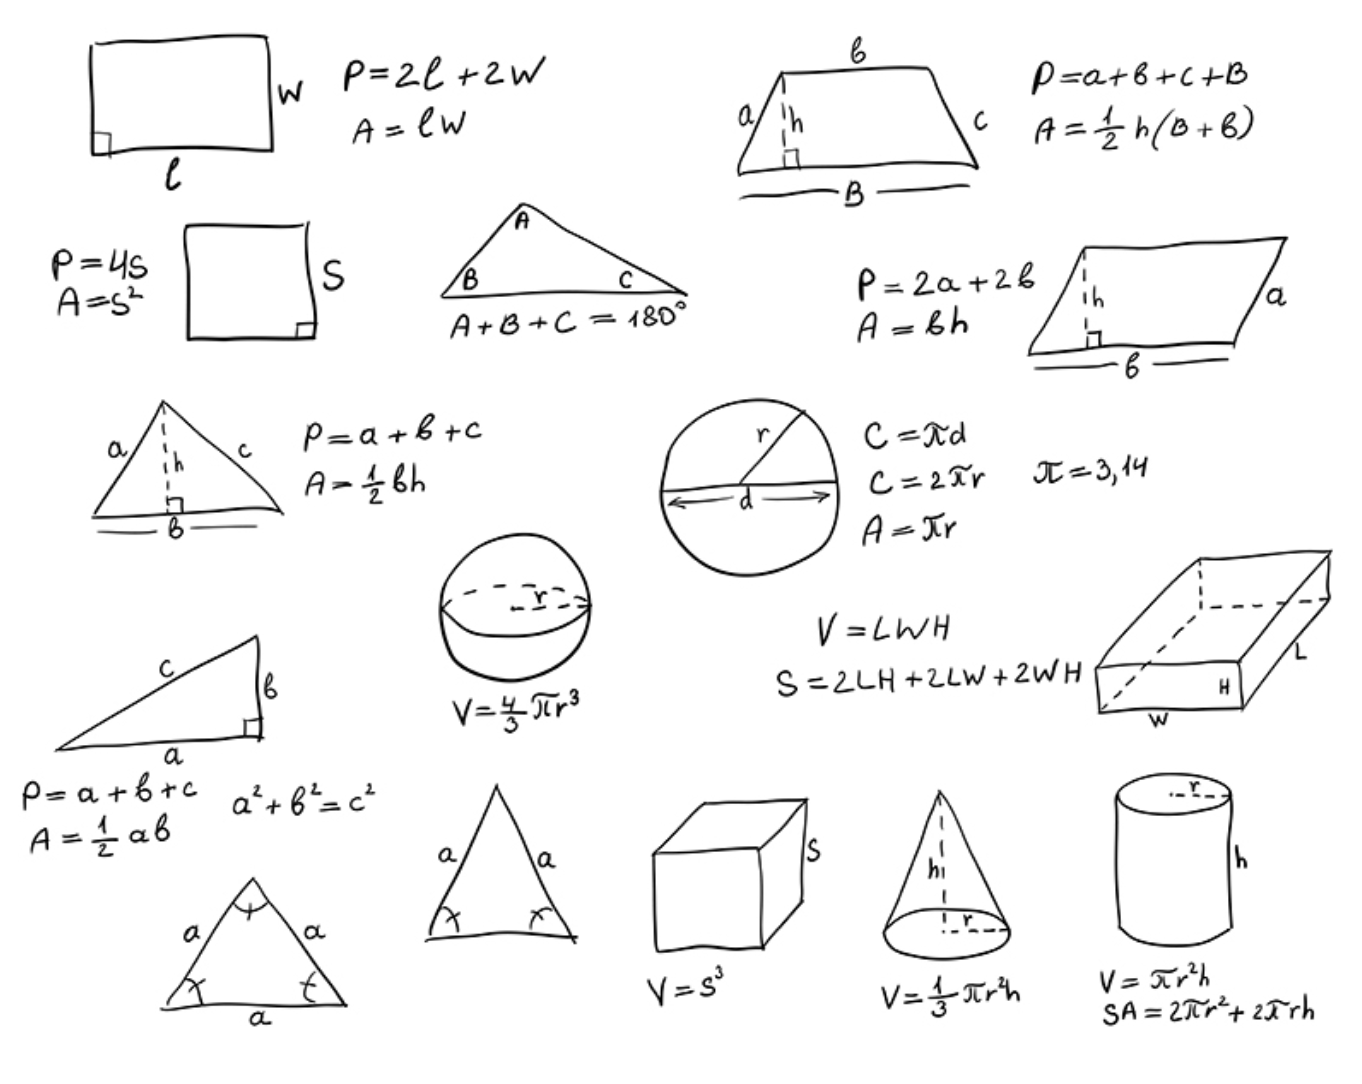 W
l
P=2l+2W
A=lW
b
a
h
c
B
P=a+b+c+B
A=1/2 h(B+b)
P=4s
A=s²
S
A
B
C
A+B+C=180°
P=2a+2b
A=bh
h
a
b
a
h
c
b
P=a+b+c
A=1/2 bh
r
d
C=πd
C=2πr
A=πr
π=3,14
r
V=4/3 πr³
V=LWH
S=2LH+2LW+2WH
L
H
W
c
b
a
P=a+b+c
A=1/2 ab
a²+b²=c²
a
a
a
a
a
S
V=S³
h
r
V=1/3 πr²h
r
h
V=πr²h
SA=2πr²+2πrh